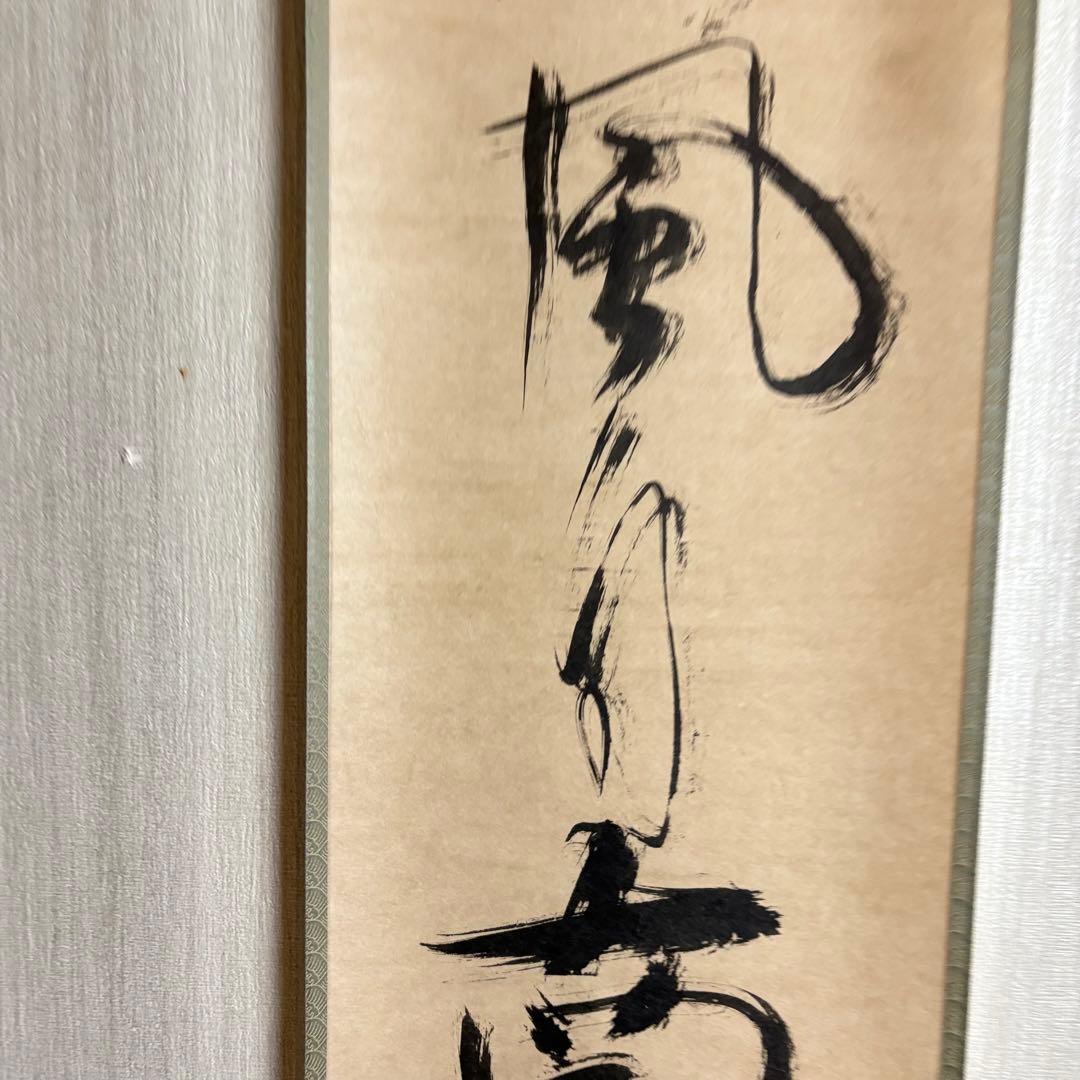 風自南